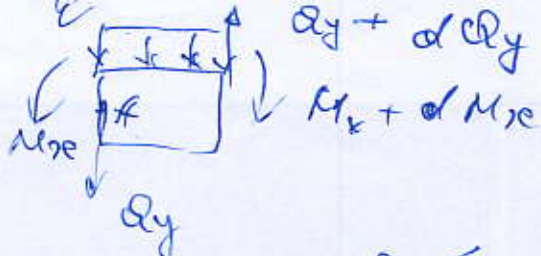 Qy + dQy
Mx + dMx
Mx
Qy